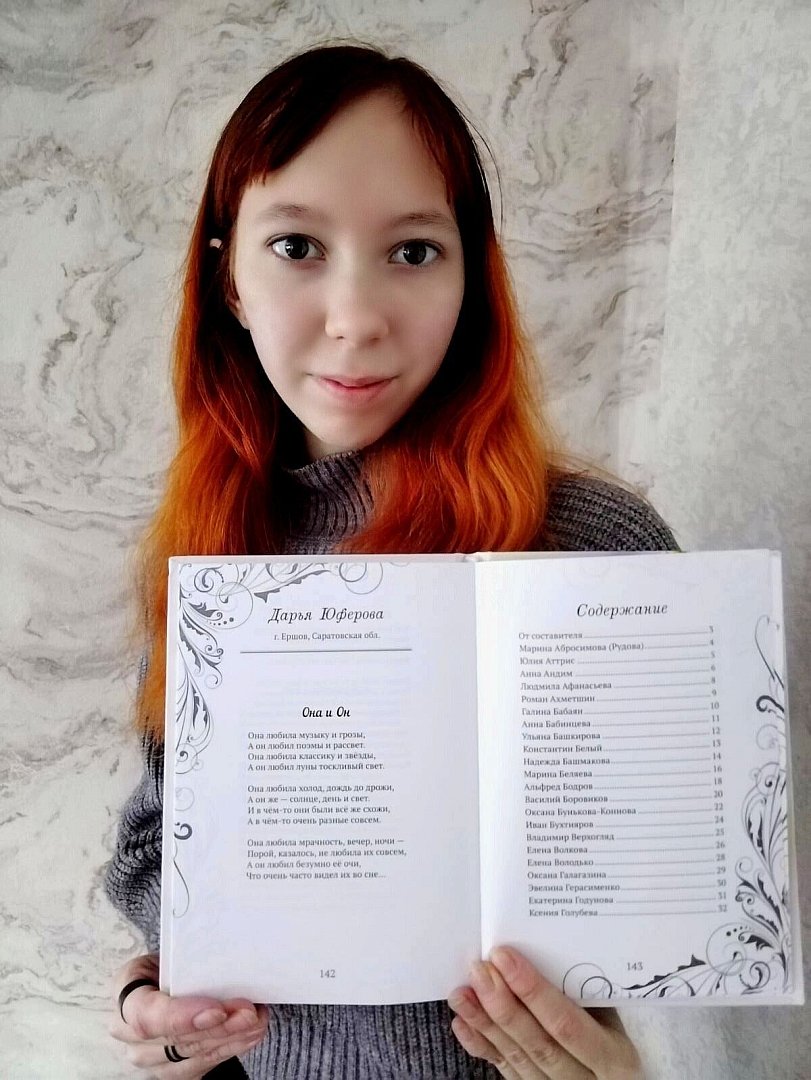 Дарья Юферова
г. Ершов, Саратовская обл.
Она и Он
Она любила музыку и грозы,
А он любил поэмы и рассвет.
Она любила классику и звёзды,
А он любил луны тоскливый свет.
Она любила холод, дождь до дрожи,
А он же — солнце, день и свет.
И в чём-то они были всё же схожи,
А в чём-то очень разные совсем.
Она любила мрачность, вечер, ночи —
Порой, казалось, не любила их совсем,
А он любил безумно её очи,
Что очень часто видел их во сне...
142
Содержание
От составителя 3
Марина Абросимова (Рудова) 4
Юлия Аттрис 5
Анна Андим 6
Людмила Афанасьева 8
Роман Ахметшин 9
Галина Бабаян 10
Анна Бабинцева 11
Ульяна Башкирова 12
Константин Белый 13
Надежда Башмакова 14
Марина Беляева 16
Альфред Бодров 18
Василий Боровиков 20
Оксана Бунькова-Коннова 22
Иван Бухтияров 24
Владимир Верхогляд 25
Елена Волкова 26
Елена Володько 28
Оксана Галагазина 29
Эвелина Герасименко 30
Екатерина Годунова 31
Ксения Голубева 32
143